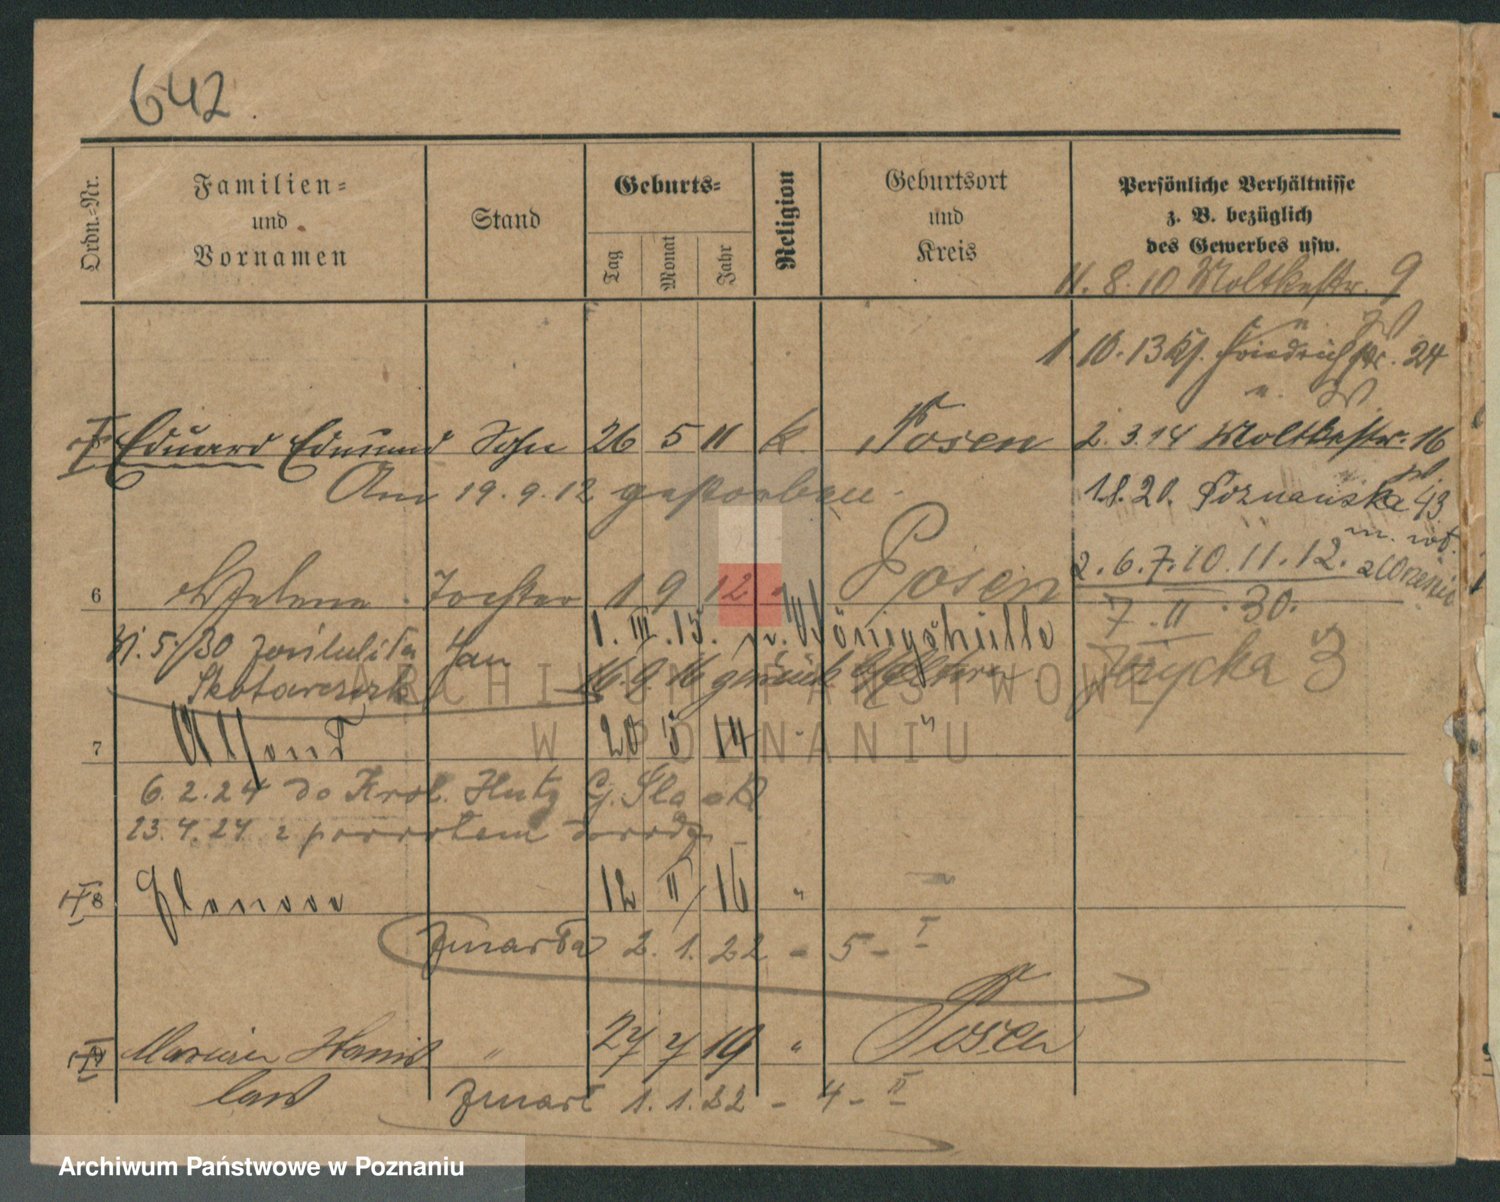 642.
Ordn.-Nr.
Familien-
und
Vornamen
Stand
Geburts-
Tag
Monat
Jahr
Religion
Geburtsort
und
Kreis
Persönliche Verhältnisse
z. B. bezüglich
des Gewerbes usw.
11. 8. 10 Moltkestr. 9
1 10. 13 Friedrichstr. 24
Eduard Edmund Sohn 26 5 11 k. Posen 2. 3. 14 Moltkestr. 16
Am 19. 9. 12 gestorben. 18. 20. Poznańska 43
2. 6. 7. 10. 11. 12.
6 Helene Tochter 1 9 12 Posen
7. II. 30.
1. III. 15. Königshütte
5/30 Jan
Skotarczak 16. 9. 16 zurück
Jeżycka 3
7 Alfons 20 5 14 "
6. 2. 24 do Król. Huty G. Śląsk
23. 4. 24 z powrotem
8 Eleonore 12 II 16 "
zmarła 2. 1. 22 - 5 - I
Marian Stanis 27 7 19 " Posen
laus
zmarł 1. 1. 22 - 4 - II
ARCHIWUM PAŃSTWOWE
W POZNANIU
Archiwum Państwowe w Poznaniu